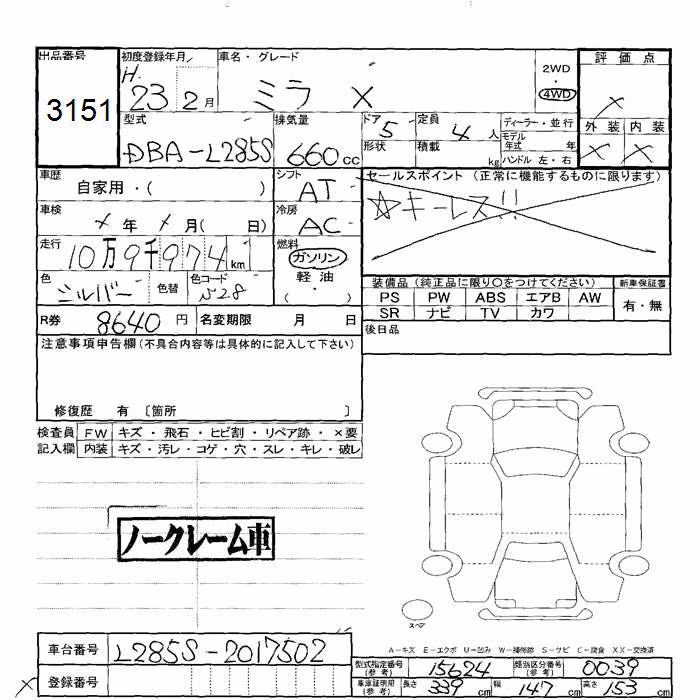 出品番号 初度登録年月 車名・グレード 評価点
3151 H. 23 2月 ミラ X 2WD・4WD ×
型式 排気量 ドア 5 定員 4人 ディーラー・並行 外装 内装
DBA-L285S 660cc 形状 積載 kg モデル年式 年 × ×
ハンドル 左・右
車歴 シフト セールスポイント (正常に機能するものに限ります)
自家用・( ) AT ☆キーレス!!
車検 × 年 × 月( 日) 冷房 AC
走行 10万9千974km 燃料 ガソリン
色 シルバー 色替 色コード 軽油・( )
装備品 (純正品に限り〇をつけてください) 新車保証書
PS PW ABS エアB AW 有・無
SR ナビ TV カワ
R券 8640円 名変期限 月 日 後日品
注意事項申告欄(不具合内容等は具体的に記入して下さい)
修復歴 有 〔箇所 〕
検査員 FW キズ・飛石・ヒビ割・リペア跡・×要
記入欄 内装 キズ・汚レ・コゲ・穴・スレ・キレ・破レ
ノークレーム車
スペア
A-キズ E-エクボ U-凹み W-補修跡 S-サビ C-腐食 XX-交換済
車台番号 L285S-2017502 型式指定番号(参考) 15624 類別区分番号(参考) 0039
× 登録番号 車庫証明用(参考) 長さ 339cm 幅 147cm 高さ 153cm